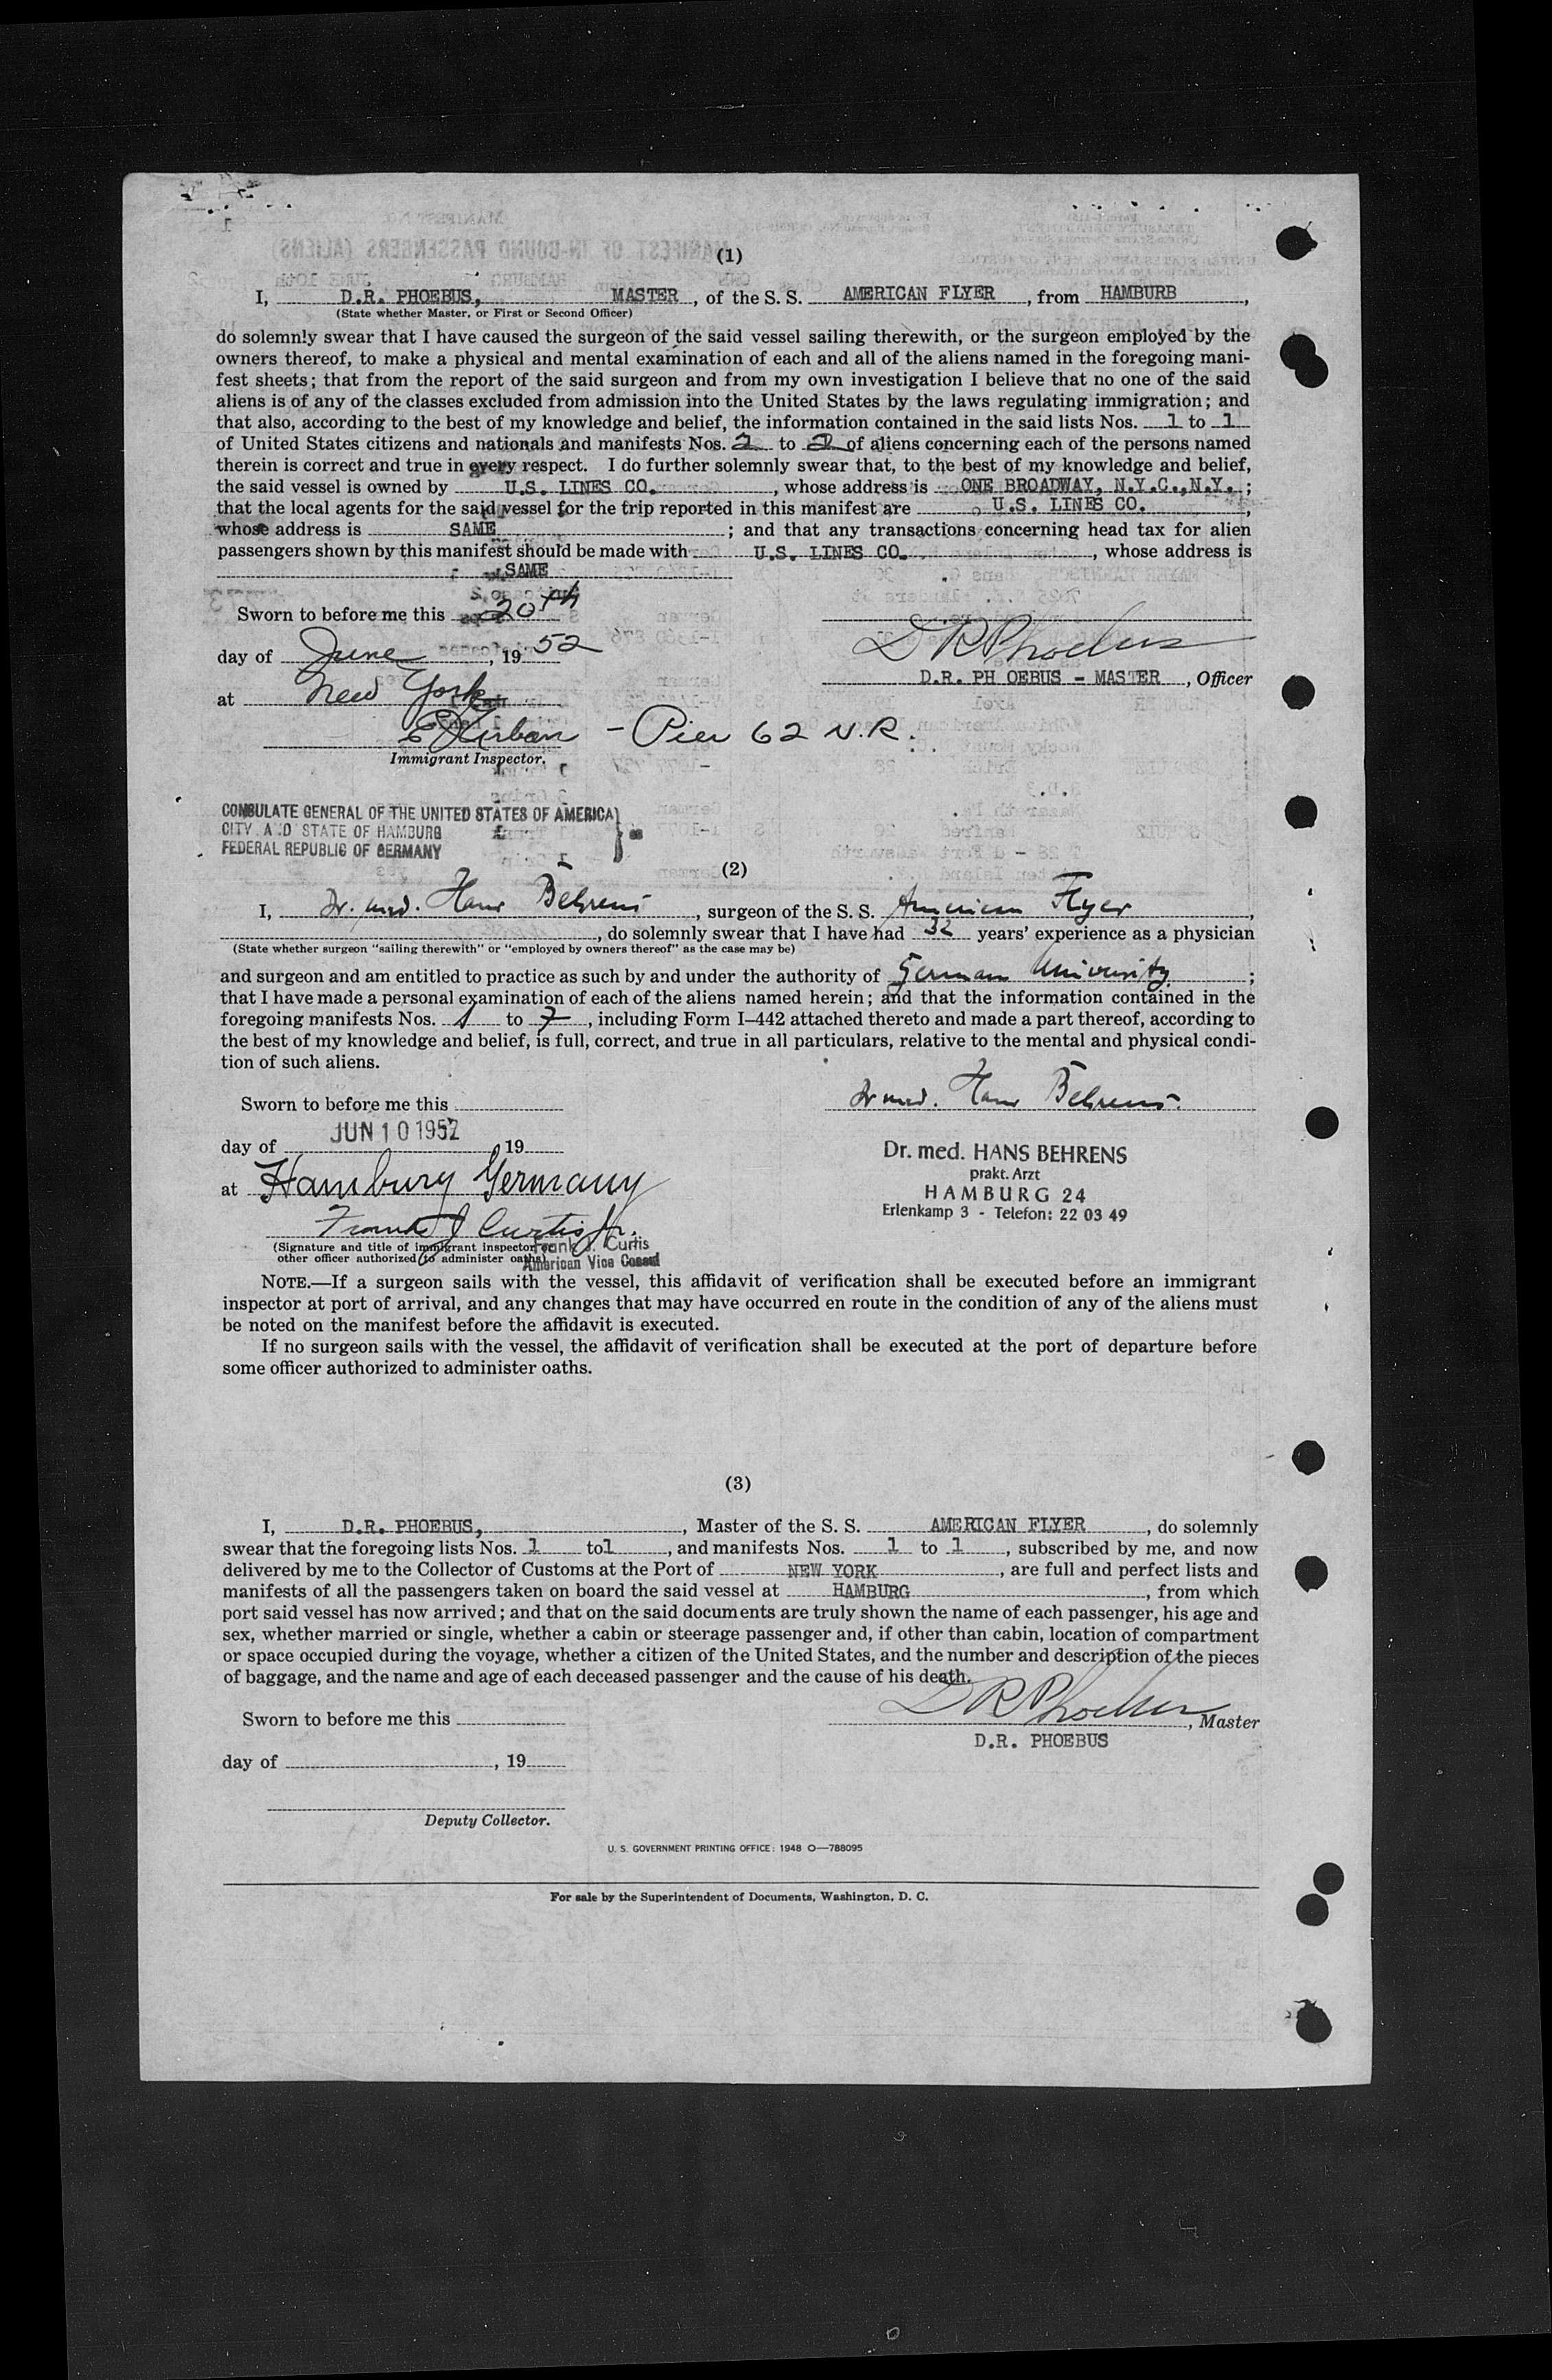 (1)
I, D.R. PHOEBUS, MASTER, of the S. S. AMERICAN FLYER, from HAMBURB,
(State whether Master, or First or Second Officer)
do solemnly swear that I have caused the surgeon of the said vessel sailing therewith, or the surgeon employed by the
owners thereof, to make a physical and mental examination of each and all of the aliens named in the foregoing mani-
fest sheets; that from the report of the said surgeon and from my own investigation I believe that no one of the said
aliens is of any of the classes excluded from admission into the United States by the laws regulating immigration; and
that also, according to the best of my knowledge and belief, the information contained in the said lists Nos. 1 to 1
of United States citizens and nationals and manifests Nos. 2 to 2 of aliens concerning each of the persons named
therein is correct and true in every respect. I do further solemnly swear that, to the best of my knowledge and belief,
the said vessel is owned by U.S. LINES CO., whose address is ONE BROADWAY, N.Y.C.,N.Y.;
that the local agents for the said vessel for the trip reported in this manifest are U.S. LINES CO.,
whose address is SAME; and that any transactions concerning head tax for alien
passengers shown by this manifest should be made with U.S. LINES CO., whose address is
SAME
Sworn to before me this 20th
day of June, 19 52
D R Phoebus
D.R. PH OEBUS - MASTER, Officer
at New York
- Pier 62 N.R.
Immigrant Inspector.
CONSULATE GENERAL OF THE UNITED STATES OF AMERICA
CITY AND STATE OF HAMBURG
FEDERAL REPUBLIC OF GERMANY
(2)
I, Dr. med. Hans Behrens, surgeon of the S. S. American Flyer,
, do solemnly swear that I have had 32 years' experience as a physician
(State whether surgeon "sailing therewith" or "employed by owners thereof" as the case may be)
and surgeon and am entitled to practice as such by and under the authority of German University;
that I have made a personal examination of each of the aliens named herein; and that the information contained in the
foregoing manifests Nos. 1 to 7, including Form I–442 attached thereto and made a part thereof, according to
the best of my knowledge and belief, is full, correct, and true in all particulars, relative to the mental and physical condi-
tion of such aliens.
Dr med. Hans Behrens.
Sworn to before me this
day of JUN 10 1952 19
at Hamburg Germany
Dr. med. HANS BEHRENS
prakt. Arzt
HAMBURG 24
Erlenkamp 3 - Telefon: 22 03 49
Frank J Curtis Jr.
(Signature and title of immigrant inspector or
other officer authorized to administer oaths)
Frank J. Curtis
American Vice Consul
NOTE.—If a surgeon sails with the vessel, this affidavit of verification shall be executed before an immigrant
inspector at port of arrival, and any changes that may have occurred en route in the condition of any of the aliens must
be noted on the manifest before the affidavit is executed.
If no surgeon sails with the vessel, the affidavit of verification shall be executed at the port of departure before
some officer authorized to administer oaths.
(3)
I, D.R. PHOEBUS,, Master of the S. S. AMERICAN FLYER, do solemnly
swear that the foregoing lists Nos. 1 to1, and manifests Nos. 1 to 1, subscribed by me, and now
delivered by me to the Collector of Customs at the Port of NEW YORK, are full and perfect lists and
manifests of all the passengers taken on board the said vessel at HAMBURG, from which
port said vessel has now arrived; and that on the said documents are truly shown the name of each passenger, his age and
sex, whether married or single, whether a cabin or steerage passenger and, if other than cabin, location of compartment
or space occupied during the voyage, whether a citizen of the United States, and the number and description of the pieces
of baggage, and the name and age of each deceased passenger and the cause of his death.
D R Phoebus, Master
Sworn to before me this
D.R. PHOEBUS
day of , 19
Deputy Collector.
U. S. GOVERNMENT PRINTING OFFICE: 1948 O—788095
For sale by the Superintendent of Documents, Washington, D. C.